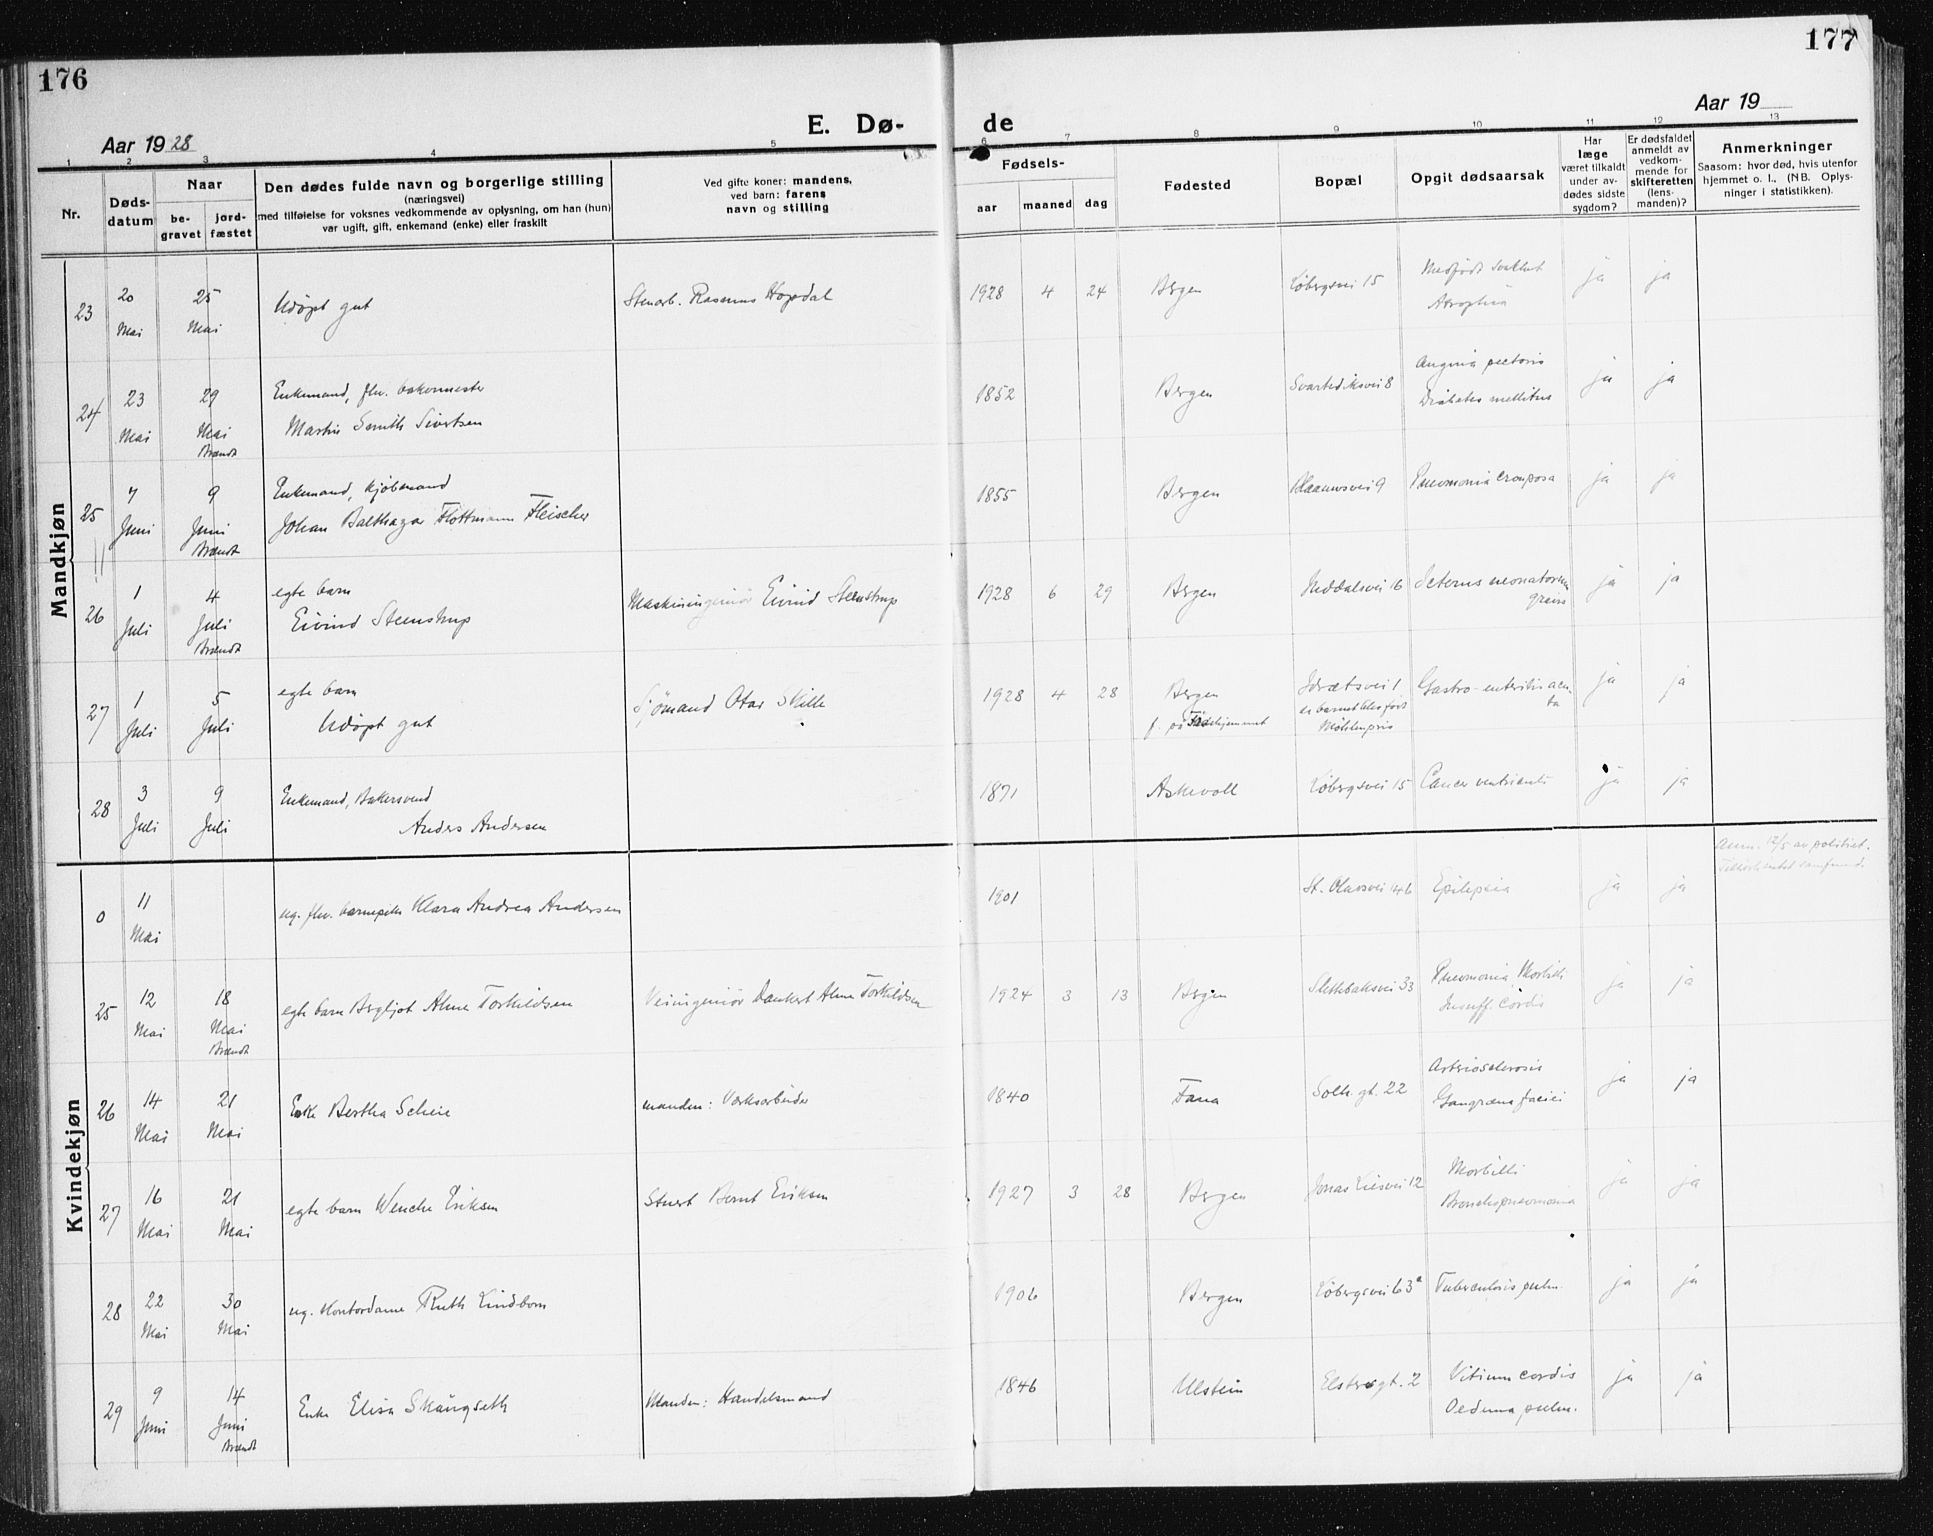 176
177
Aar 1928
E. Dø-
de
Aar 19
1 2 3 4 5 6 7 8 9 10 11 12 13
Nr.
Døds-
datum
Naar
be-
gravet
jord-
fæstet
Den dødes fulde navn og borgerlige stilling
(næringsvei)
med tilføielse for voksnes vedkommende av oplysning, om han (hun)
var ugift, gift, enkemand (enke) eller fraskilt
Ved gifte koner: mandens,
ved barn: farens
navn og stilling
Fødsels-
aar maaned dag
Fødested
Bopæl
Opgit dødsaarsak
Har
læge
været tilkaldt
under av-
dødes sidste
sygdom?
Er dødsfaldet
anmeldt av
vedkom-
mende for
skifteretten
(lens-
manden)?
Anmerkninger
Saasom: hvor død, hvis utenfor
hjemmet o. l., (NB. Oplys-
ninger i statistikken).
Mandkjøn
23 20 Mai 25 Mai Udøpt gut Stenarb. Rasmus Hopdal 1928 4 24 Bergen Løbergsvei 15 Medfødt svakhet
Atrophia ja ja
24 23 Mai 29 Mai Brændt Enkemand, fhv. bakermester
Martin Smith Sivertsen 1852 Bergen Svartediksvei 8 Angina pectoris
Diabetes mellitus ja ja
25 7 Juni 9 Juni Brændt Enkemand, kjøbmand
Johan Balthazar Flottmann Fleischer 1855 Bergen 9 Pneumonia crouposa ja ja
26 1 Juli 4 Juli Brændt egte barn
Eivind Steenstrup Maskiningeniør Eivind Steenstrup 1928 6 29 Bergen Nøddalsvei 16 Icterus neonatorum
gravis ja ja
27 1 Juli 5 Juli egte barn
Udøpt gut Sjømand Otar Skille 1928 4 28 Bergen
f. på Fødehjemmet Idrætsvei 1
Møhlenpris Gastro-enteritis acu-
ta ja ja
28 3 Juli 9 Juli Enkemand, Bakersvend
Anders Andersen 1871 Askevoll Løbergsvei 15 Cancer ventriculi ja ja
Kvindekjøn
0 11 Mai ug. fhv. barnepike Klara Andrea Andersen 1901 St. Olavsvei 46 Epilepsia ja ja Anm. 12/5 av politiet.
25 12 Mai 18 Mai Brændt egte barn Bergljot Alme Torkildsen Veiingeniør Dankert Alme Torkildsen 1924 3 13 Bergen Slettebaksvei 33 Pneumonia, Morbilli
Insuff. cordis ja ja
26 14 Mai 21 Mai Enke Bertha Scheie manden: Verksarbeider 1840 Fana Solh. gt. 22 Arteriosclerosis
Gangræna faciei ja ja
27 16 Mai 21 Mai egte barn Wenche Eriksen Stuert Bernt Eriksen 1927 3 28 Bergen Jonas Liesvei 12 Morbilli
Bronchopneumonia ja ja
28 22 Mai 30 Mai ug. Kontordame Ruth Lindbom 1906 Bergen Løbergsvei 63a Tuberculosis pulm. ja ja
29 9 Juni 14 Juni Brændt Enke Elisa Skaugseth Manden: Handelsmand 1846 Ulstein Elstersgt. 2 Vitium cordis
Oedema pulm. ja ja